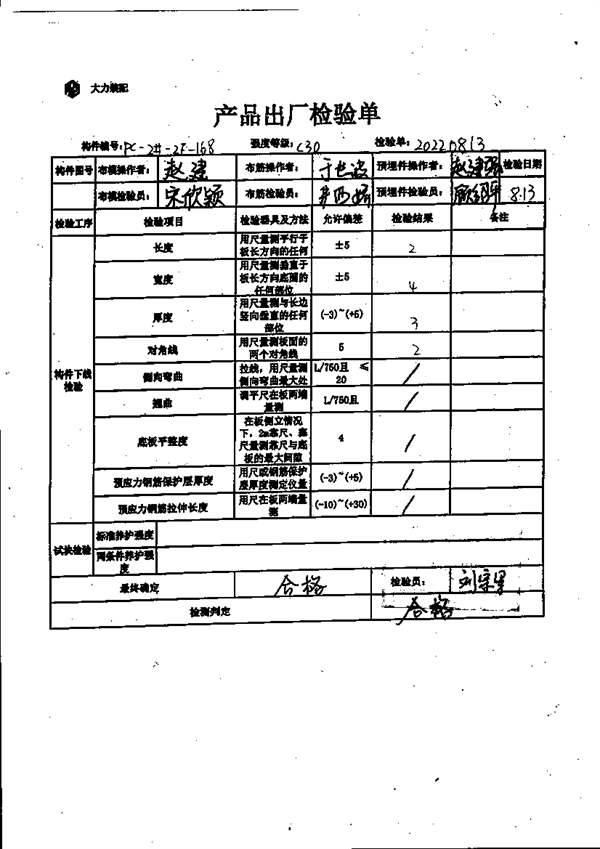 大力装配
产品出厂检验单
构件编号: PC-2#-2F-168 强度等级: C30 检验单: 20220813
构件图号 布模操作者: 赵建 布筋操作者: 预埋件操作者: 检验日期
布模检验员: 宋欣颖 布筋检验员: 预埋件检验员: 8.13
检验工序 检验项目 检验器具及方法 允许偏差 检验结果 备注
构件下线检验
长度 用尺量测平行于板长方向的任何 ±5 2
宽度 用尺量测垂直于板长方向底面的任何部位 ±5 4
厚度 用尺量测与长边竖向垂直的任何部位 (-3)~(+5) 3
对角线 用尺量测板面的两个对角线 5 2
侧向弯曲 拉线，用尺量测侧向弯曲最大处 L/750且 ≤20 /
翘曲 调平尺在板两端量测 L/750且 /
底板平整度 在板侧立情况下，2m靠尺、塞尺量测靠尺与底板的最大间隙 4 /
预应力钢筋保护层厚度 用尺或钢筋保护层厚度测定仪量 (-3)~(+5) /
预应力钢筋拉伸长度 用尺在板两端量测 (-10)~(+30) /
试块检验 标准养护强度
同条件养护强度
最终确定 合格 检验员:
检测判定 合格